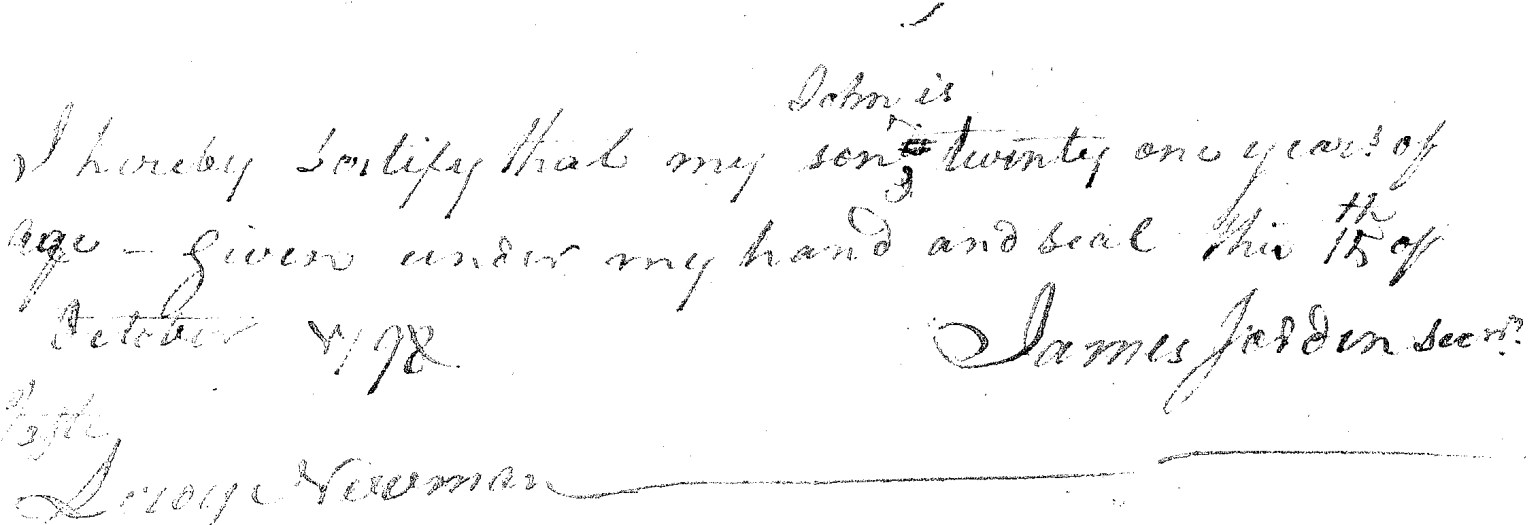 John is
I hereby Sertify that my son twenty one years of
age – Given under my hand and seal this 15th of
October 1798
James Jorden seenr
Teste
George Newman